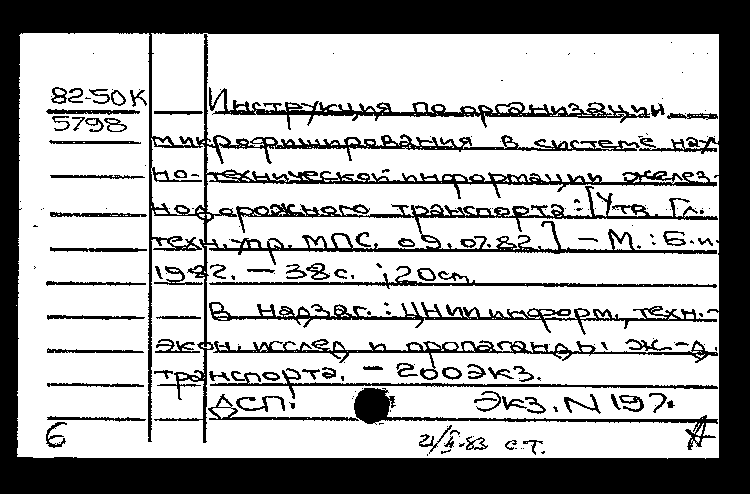 82-50К
5798
Инструкция по организации
микрофишрования в системе науч
но-технической информации желез-
нодорожного транспорта: [Утв. Гл.
техн. упр. МПС. 09.07.82.] - М. : Б.и.
1982. - 38с. ; 20см.
В надзаг.: ЦНИИ информ., техн.-
экон. исслед и пропаганды ж-д.
транспорта. - 200экз.
ДСП. Экз. N 197.
6 83 с.т. А